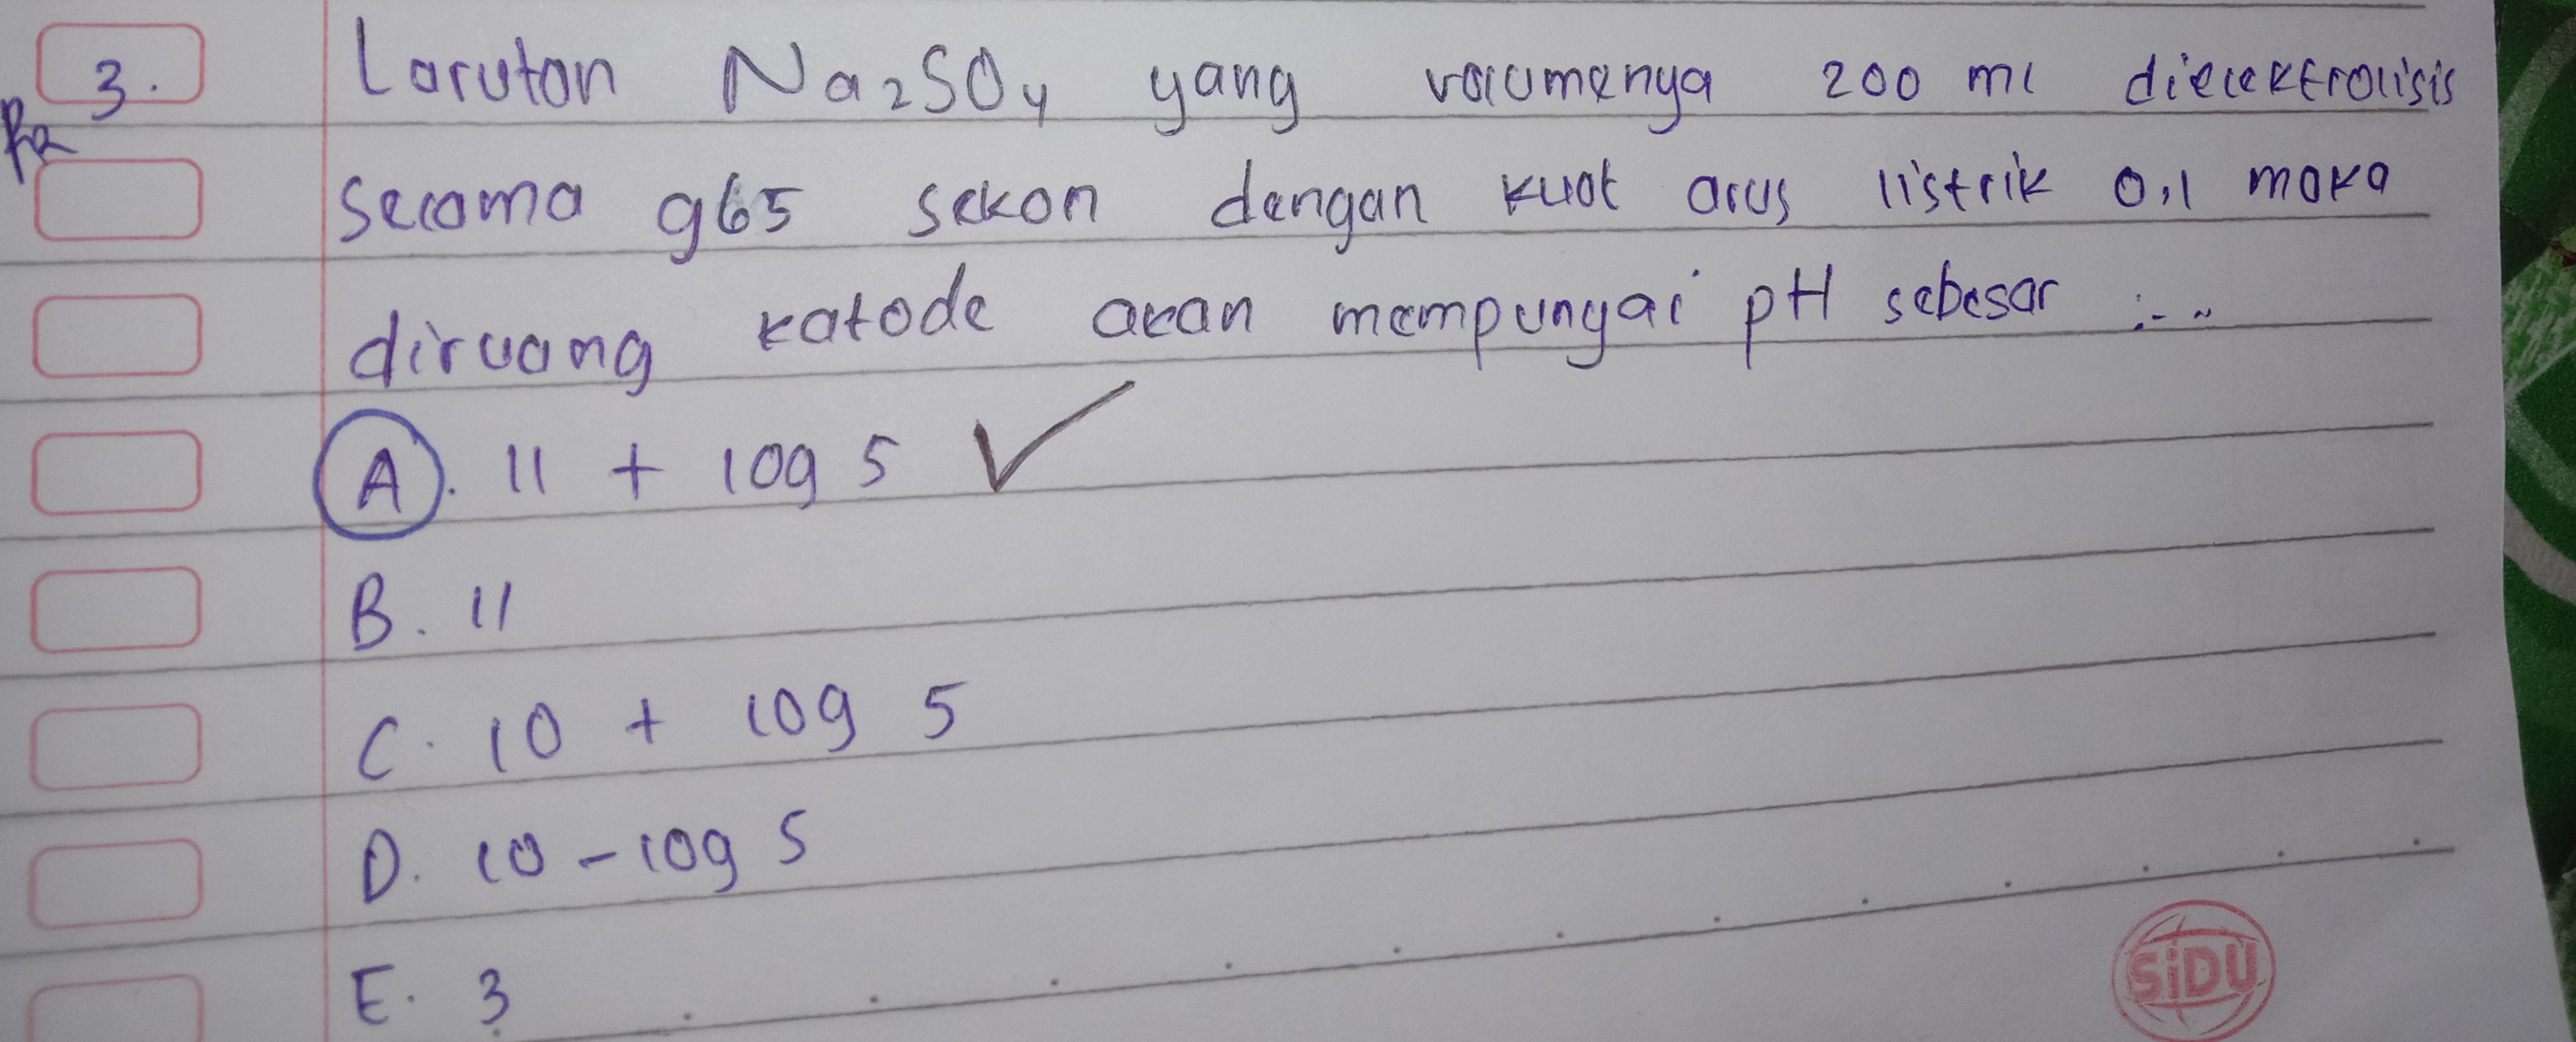 3. Larutan Na2SO4 yang volumenya 200 ml dielektrolisis
PR
selama 965 sekon dengan kuat arus listrik 0,1 maka
diruang katode akan mempunyai pH sebesar ....
A. 11 + log 5 ✓
B. 11
C. 10 + log 5
D. 10 - log 5
E. 3
SiDU